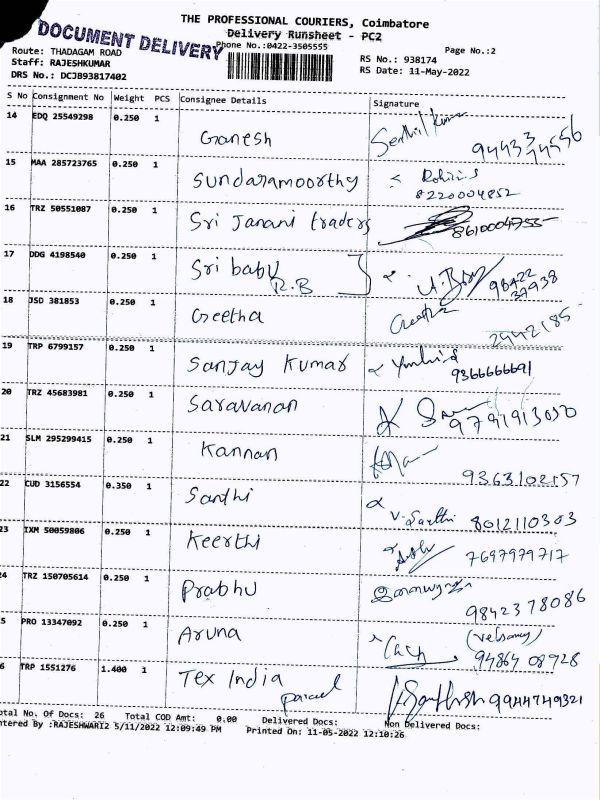 THE PROFESSIONAL COURIERS, Coimbatore
DOCUMENT DELIVERY
Delivery Runsheet - PC2
Phone No.:0422-3505555
Page No.:2
Route: THADAGAM ROAD
Staff: RAJESHKUMAR
DRS No.: DCJB93817402
RS No.: 938174
RS Date: 11-May-2022
S No Consignment No Weight PCS Consignee Details Signature
14 EDQ 25549298 0.250 1 Ganesh Senthil kumar
15 MAA 285723765 0.250 1 Sundaramoorthy Rohini.S
8220004852
16 TRZ 50551087 0.250 1 Sri Janani traders 8610004755
17 DDG 4198540 0.250 1 Sri babu
R.B 98422
37938
18 JSD 381853 0.250 1 Geetha Geetha
2942185
19 TRP 6799157 0.250 1 Sanjay Kumar
9366666691
20 TRZ 45683981 0.250 1 Saravanan
9791913050
21 SLM 295299415 0.250 1 Kannan
9363102157
22 CUD 3156554 0.350 1 Santhi V. Santhi 8012110303
23 IXM 50059806 0.250 1 Keerthi 7697979717
24 TRZ 150705614 0.250 1 Prabhu
9842378086
5 PRO 13347092 0.250 1 Aruna
94864 08928
6 TRP 1551276 1.400 1 Tex India
parcel 9944749321
otal No. Of Docs: 26 Total COD Amt: 0.00 Delivered Docs: Non Delivered Docs:
ntered By :RAJESHWARI2 5/11/2022 12:09:49 PM Printed On: 11-05-2022 12:10:26